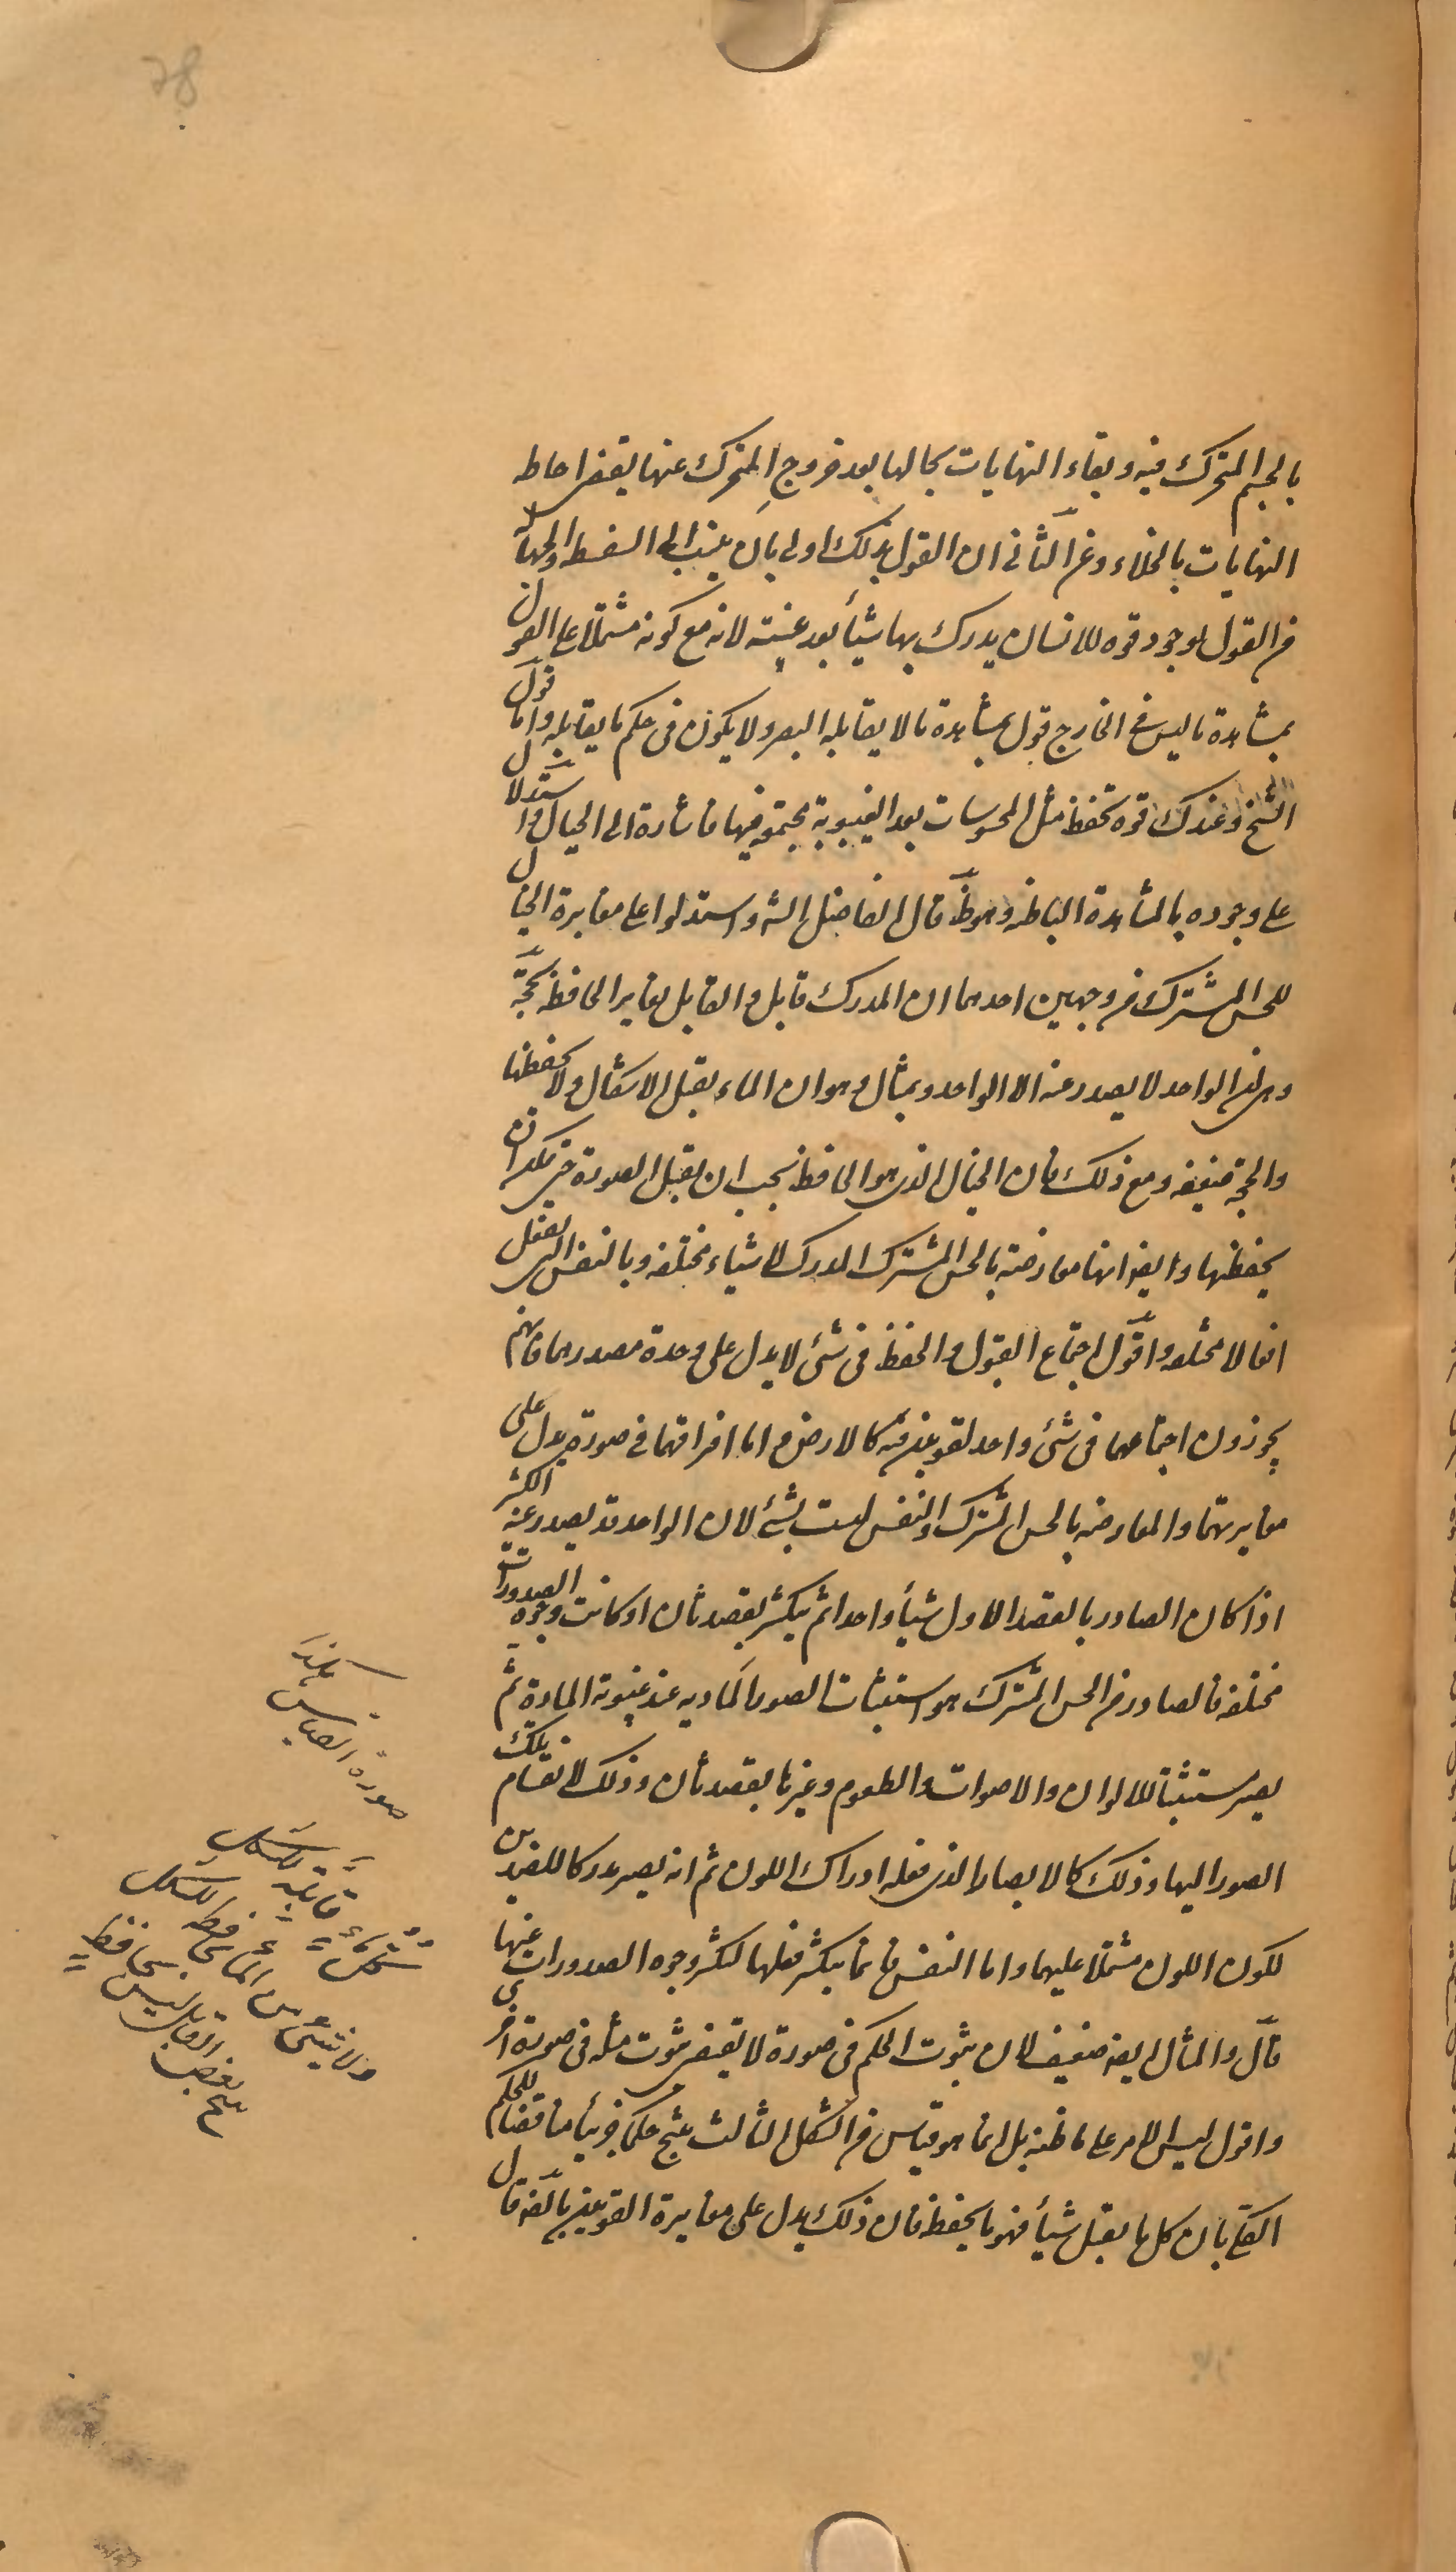 78
بالجسم المتحرك فيه وبقاء النهايات بحالها بعد خروج المتحرك عنها يقتضي احاطه
النهايات بالخلاء وعن الثاني ان القول بذلك اولى بان ينسب الى السفسطه والجهالة
من القول بوجود قوه للانسان يدرك بها شيأ بعد غيبته لانه مع كونه مشتملا على القول
بمشاهدة ما ليس في الخارج قول بمشاهدة ما لا يقابله البصر ولا يكون في حكم ما يقابله واما قول
الشيخ وعندك قوه تحفظ مثل المحسوسات بعد الغيبوبة مجتمعه فيها فاشارة الى الخيال واستدلال
على وجوده بالمشاهدة الباطنه وهو ظ قال الفاضل الشه واستدلوا على مغايرة الخيال
للحس المشترك من وجهين احدهما ان المدرك قابل والقابل يغاير الحافظ بحجة
وهى ان الواحد لا يصدر عنه الا الواحد وبمثال وهو ان الماء يقبل الاشكال ولا يحفظها
والحجه ضعيفه ومع ذلك فان الخيال الذى هو الحافظ يجب ان يقبل الصورة حتى يمكنه ان
يحفظها وايضا انها معارضة بالحس المشترك المدرك لاشياء مختلفه وبالنفس التى يفعل
افعالا مختلفه واقول اجتماع القبول والحفظ في شئ لا يدل على وحدة مصدرهما فانهم
يجوزون اجتماعهما في شئ واحد لقوتين فيه كالارض واما افتراقهما في صورة يدل على
مغايرتهما والمعارضه بالحس المشترك والنفس ليست بشئ لان الواحد قد يصدر عنه الكثير
اذا كان الصادر بالقصد الاول شيأ واحدا ثم يتكثر بقصد ثان او كانت وجوه الصدورات
مختلفه فالصادر من الحس المشترك هو استثبات الصور المادیه عند غيبوبة المادة ثم
يصير مستثبتا للالوان والاصوات والطعوم وغيرها بقصد ثان وذلك لانقسام تلك
الصور اليها وذلك كالابصار الذى فعله ادراك اللون ثم انه يصير مدركا للضدين
لكون اللون مشتملا عليهما واما النفس فانما يتكثر فعلها لتكثر وجوه الصدورات عنها
قال والمثال ايضا ضعيف لان ثبوت الحكم في صورة لا يقتضي ثبوت مثله في صورة اخرى
واقول ليس الامر على ما ظنه بل انما هو قياس من الشكل الثالث ينتج حكما جزئيا مناقضا للحكم
الكلى بان كل ما يقبل شيأ فهو ما يحفظه فان ذلك يدل على مغايرة القوتين بالذات قال
صورة القياس هكذا
قابلة للشكل
ولا شئ من الماء بحافظ للشكل
ينتج بعض القابل ليس بحافظ